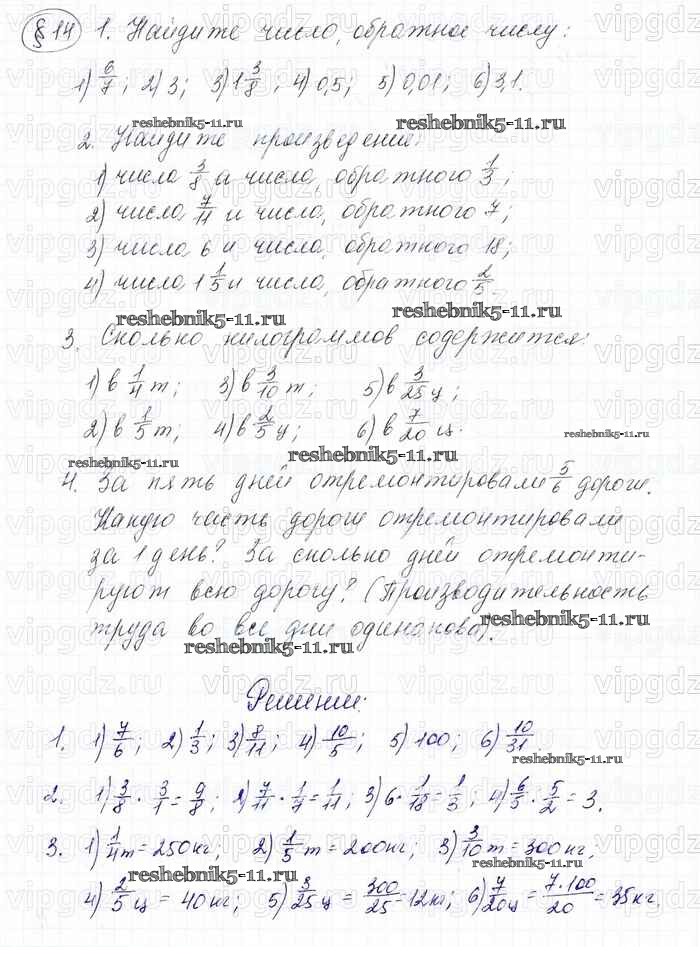 § 14 1. Найдите число, обратное числу:
1) 6/7; 2) 3; 3) 1 3/8; 4) 0,5; 5) 0,01; 6) 3,1.
reshebnik5-11.ru reshebnik5-11.ru
2. Найдите произведение:
1) числа 3/8 и числа, обратного 1/3;
2) числа 7/11 и числа, обратного 7;
3) числа 6 и числа, обратного 18;
4) числа 1 1/5 и числа, обратного 2/5
reshebnik5-11.ru reshebnik5-11.ru
3. Сколько килограммов содержится:
1) в 1/4 т; 3) в 3/10 т; 5) в 3/25 ц;
2) в 1/5 т; 4) в 2/5 ц; 6) в 7/20 ц.
reshebnik5-11.ru reshebnik5-11.ru reshebnik5-11.ru
4. За пять дней отремонтировали 5/6 дороги.
Какую часть дороги отремонтировали
за 1 день? За сколько дней отремонти-
руют всю дорогу? (Производительность
труда во все дни одинакова).
reshebnik5-11.ru reshebnik5-11.ru
Решение:
1. 1) 7/6; 2) 1/3; 3) 8/11; 4) 10/5; 5) 100; 6) 10/31.
reshebnik5-11.ru
2. 1) 3/8 · 3/1 = 9/8; 2) 7/11 · 1/7 = 1/11; 3) 6 · 1/18 = 1/3; 4) 6/5 · 5/2 = 3.
3. 1) 1/4 т = 250 кг; 2) 1/5 т = 200 кг; 3) 3/10 т = 300 кг;
reshebnik5-11.ru reshebnik5-11.ru
4) 2/5 ц = 40 кг; 5) 3/25 ц = 300/25 = 12 кг; 6) 7/20 ц = 7·100/20 = 35 кг.